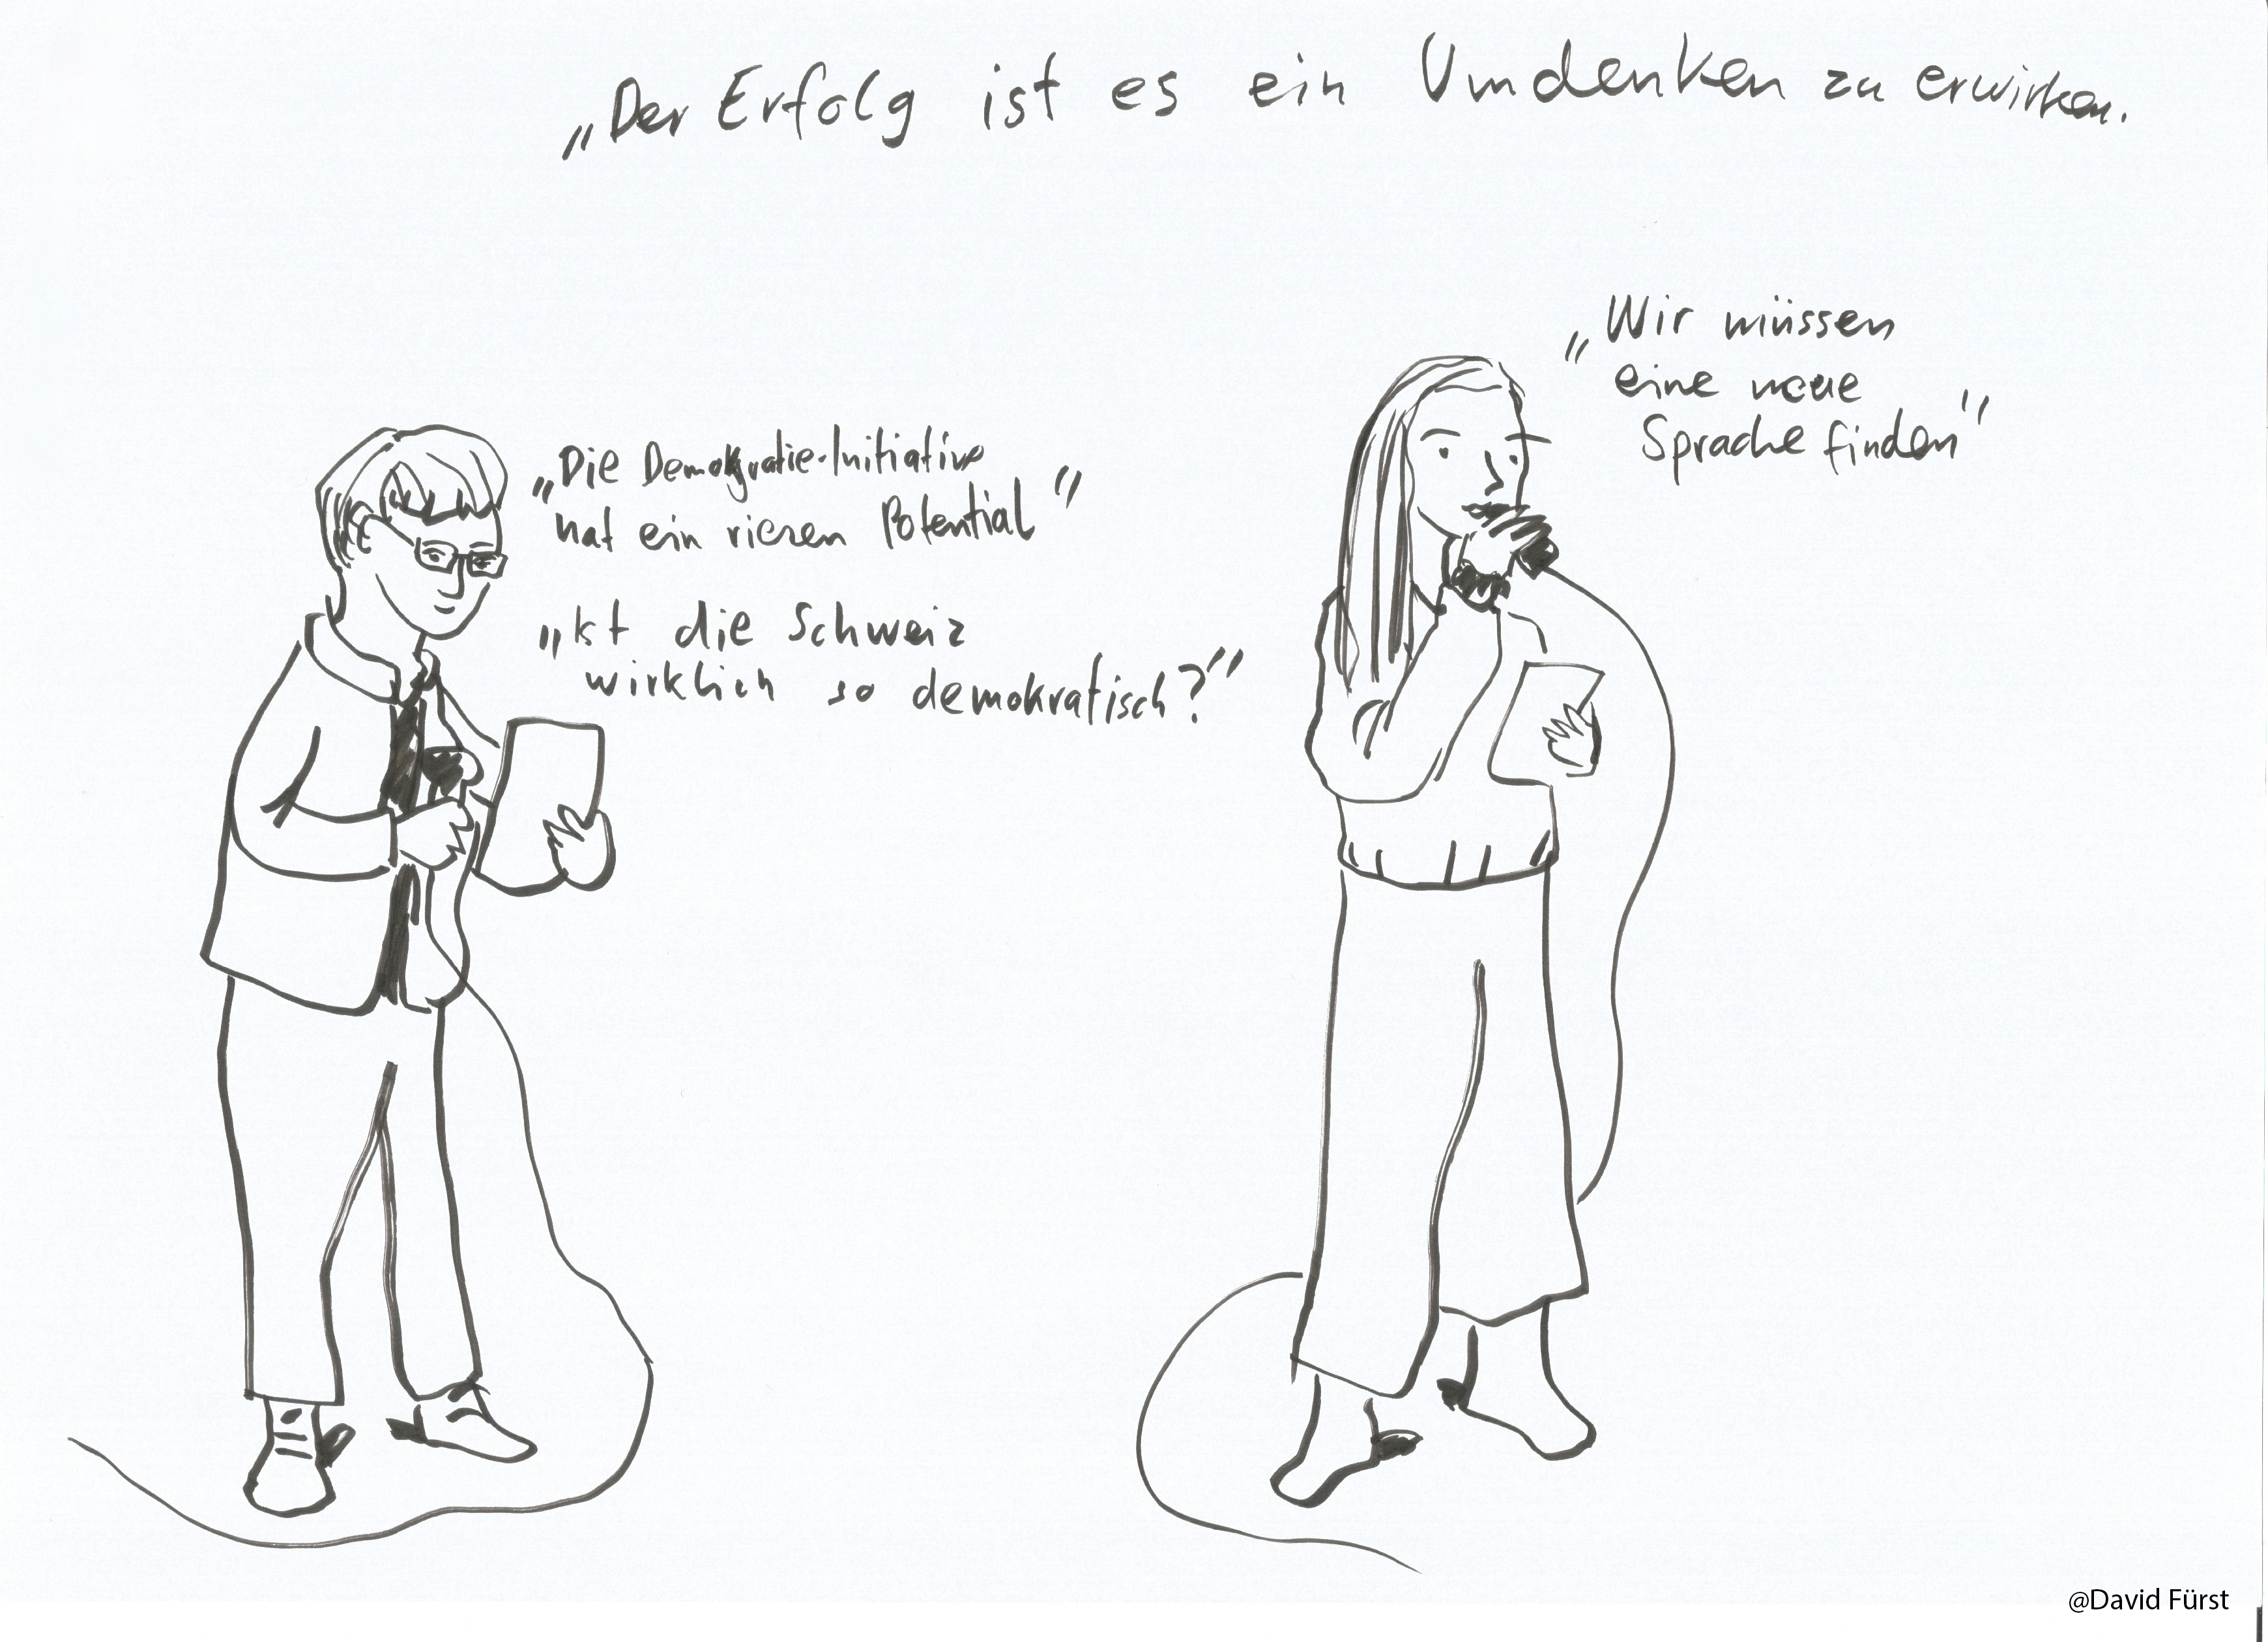 „Der Erfolg ist es ein Umdenken zu erwirken.
„Wir müssen
eine neue
Sprache finden"
„Die Demokratie-Initiative
hat ein riesen Potential"
„Ist die Schweiz
wirklich so demokratisch?"
@David Fürst